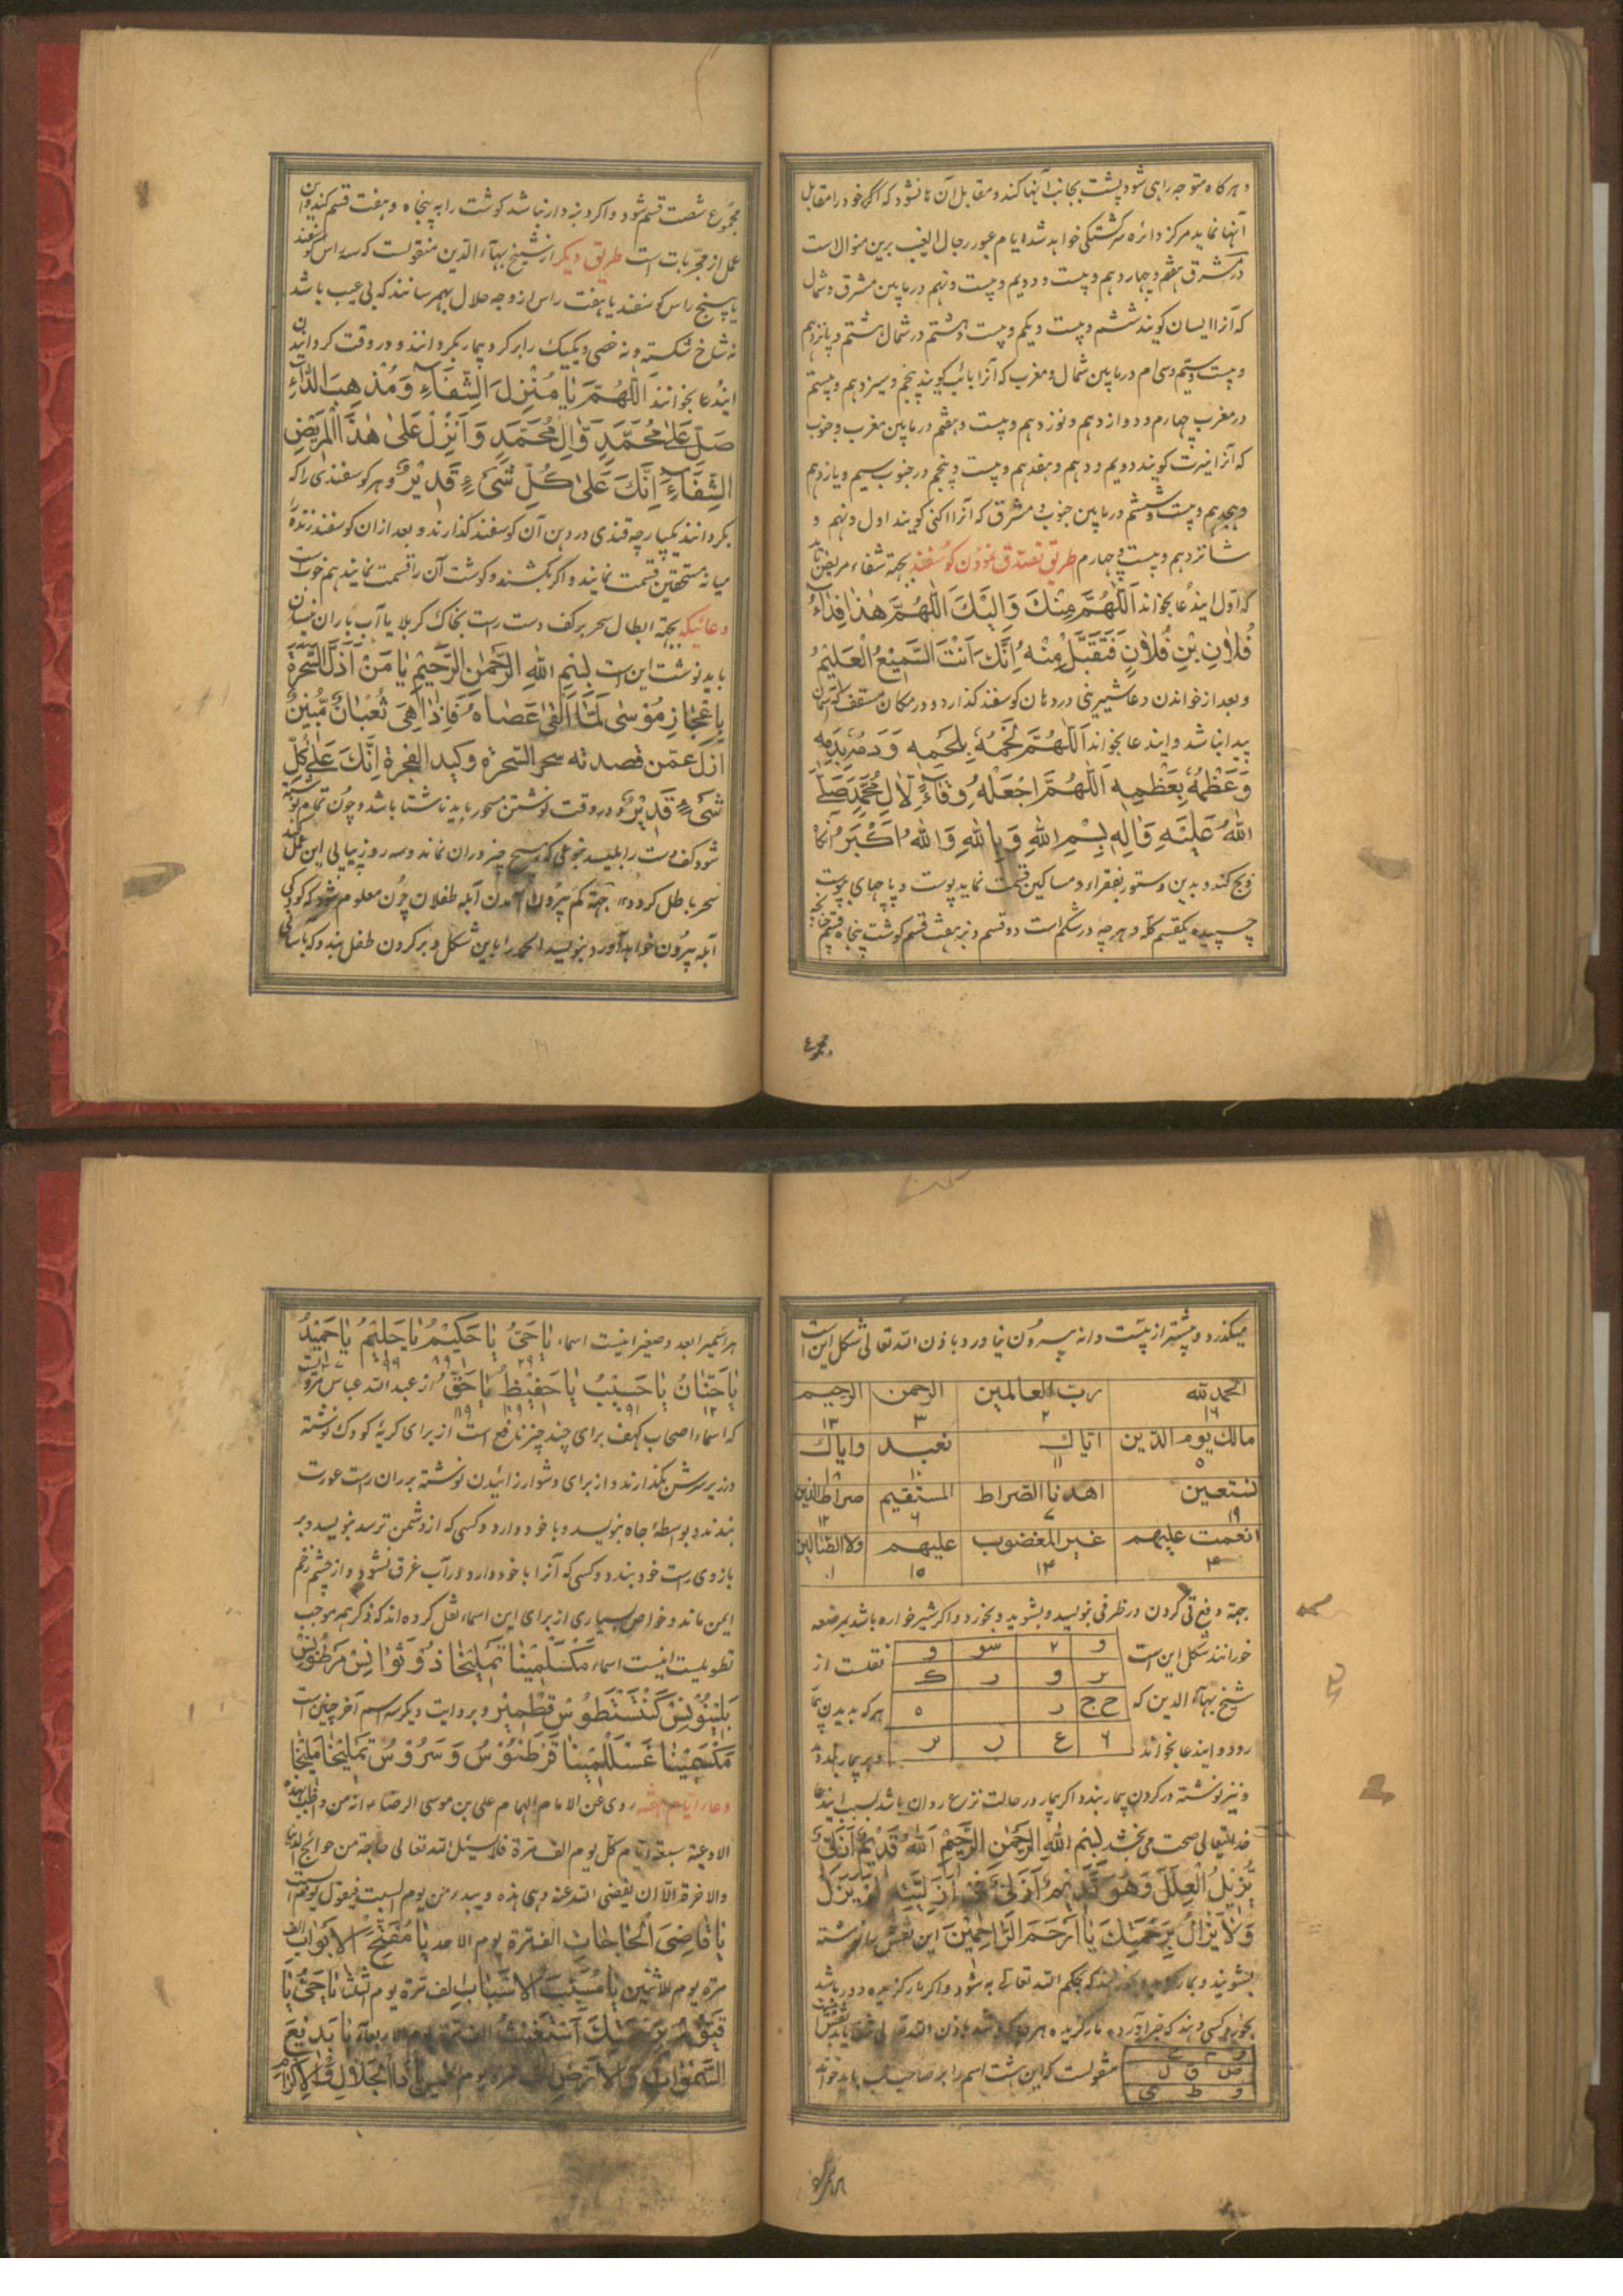 و هر کاه متوجه راهی شود پشت بجانب آنها کند و مقابل آن تا نشود که اکر خود را مقابل
آنها نماید مرکز دائره سرکشتکی خواهد شد ایام عبور رجال الغیب برین منوال است
در مشرق هفتم و چهاردهم و بیست و دویم و بیست و نهم در مابین مشرق و شمال
که آنرا ایسان کویند ششم و بیست و یکم و بیست و هشتم در شمال هشتم و پانزدهم
و بیست و سیم و سی ام در مابین شمال و مغرب که آنرا بائب کویند پنجم و سیزدهم و بیستم
در مغرب چهارم و دوازدهم و نوزدهم و بیست و هفتم در مابین مغرب و جنوب
که آنرا نیرت کویند دویم و دهم و هفدهم و بیست و پنجم در جنوب سیم و یازدهم
و هجدهم و بیست و ششم در مابین جنوب و مشرق که آنرا اکنی کویند اول و نهم و
شانزدهم و بیست و چهارم طریق تصدق نمودن کوسفند بجهة شفاء مریض باید
که اول ایندعا بخواند اَللّٰهُمَّ مِنْكَ وَاِلَيْكَ اَللّٰهُمَّ هٰذَا فِدَاءُ
فُلَانِ بْنِ فُلَانٍ فَتَقَبَّلْ مِنْهُ اِنَّكَ اَنْتَ السَّمِيْعُ الْعَلِيْمُ
و بعد از خواندن دعا شیرینی در دهان کوسفند کذارد و در مکان مسقف که آسمان
پیدا نباشد و ایندعا بخواند اَللّٰهُمَّ لَحْمُهُ بِلَحْمِهِ وَدَمُهُ بِدَمِهِ
وَعَظْمُهُ بِعَظْمِهِ اَللّٰهُمَّ اجْعَلْهُ وِقَاءً لِاٰلِ مُحَمَّدٍ صَلَّى
اللهُ عَلَيْهِ وَاٰلِهِ بِسْمِ اللهِ وَبِاللهِ وَاللهُ اَكْبَرُ آنکاه
ذبح کند و بدین دستور بفقراء و مساکین قسمت نماید پوست و پاچهای بپوست
چسپیده یکقسم کله و هر چه در شکم است دو قسم دنبه هفت قسم کوشت پنجاه قسم چنانچه
مجموع
مجموع شصت قسم شود و اکر دنبه دار نباشد کوشت را به پنجاه و هفت قسم کند و این
عمل از مجربات است طریق دیکر از شیخ بهآء الدین منقولست که سه راس کوسفند
یا پنج راس کوسفند یا هفت راس از وجه حلال بهمرسانند که بی عیب باشد
نه شاخ شکسته و نه خصی و یکیک را بر کرد بیمار بکردانند و در وقت کردانیدن
ایندعا بخوانند اَللّٰهُمَّ يَا مُنْزِلَ الشِّفَاءِ وَمُذْهِبَ الدَّاءِ
صَلِّ عَلٰى مُحَمَّدٍ وَّاٰلِ مُحَمَّدٍ وَاَنْزِلْ عَلٰى هٰذَا الْمَرِيْضِ
الشِّفَاءَ اِنَّكَ عَلٰى كُلِّ شَىْءٍ قَدِيْرٌ و هر کوسفندی را که
بکردانند یکپارچه قندی در دهن آن کوسفند کذارند و بعد از ان کوسفند زنده
میانه مستحقین قسمت نمایند و اکر بکشند و کوشت آن را قسمت نمایند هم خوبست
دعائیکه بجهة ابطال سحر بر کف دست راست بخاک کربلا یا آب باران نیسان
باید نوشت این است بِسْمِ اللهِ الرَّحْمٰنِ الرَّحِيْمِ يَا مَنْ اَذَلَّ السَّحَرَةَ
بِاِعْجَازِ مُوْسٰى لَمَّا اَلْقٰى عَصَاهُ فَاِذَا هِيَ ثُعْبَانٌ مُّبِيْنٌ
ازل عمّن قصدته سحر السّحرة و کید الفجرة اِنَّكَ عَلٰى كُلِّ
شَىْءٍ قَدِيْرٌ و در وقت نوشتن مسحور باید ناشتا باشد و چون تمام نوشته
شود کف دست را بلیسد بنوعی که هیچ چیز در ان نماند و سه روز پیاپی این عمل کند
سحر باطل کردد بجهة کم بیرون آمدن آبله طفلان چون معلوم شود که کودکی
آبله بیرون خواهد آورد بنویسد الحمد را باین شکل و بر کردن طفل بندد که بآسانی
میکذرد و بیشتر از بیست دانه بیرون نیاورد باذن الله تعالی شکل این است
الحمد لله ١٦ رب العالمین ٢ الرحمن ٣ الرحیم ١٣
مالك یوم الدین ٥ ایّاك ١١ نعبد ١٠ وایاك
نستعین ١٩ اهدنا الصراط ٧ المستقیم ٦ صراط الذین ١٢
انعمت علیهم ٤ غیر المغضوب ١٤ علیهم ١٥ ولا الضالین ١
بجهة دفع قی کردن در ظرفی بنویسد و بشوید و بخورد و اکر شیرخواره باشد بمرضعه
خورانند شکل این است نقلست از
و ٢ سو و
ر و ر ك
شیخ بهآء الدین که هر که بدیدن بیمار
ح ج ر ه
رود و ایندعا بخواند
٦ ع ر ر
و نیز نوشته در کردن بیمار بندد اکر بیمار در حالت نزع روان باشد بسبب ایندعا
خدایتعالی صحت می بخشد بِسْمِ اللهِ الرَّحْمٰنِ الرَّحِيْمِ اَللهُ قَدِيْمٌ اَزَلِيٌّ
يُزِيْلُ الْعِلَلَ وَهُوَ قَدِيْمٌ اَزَلِيٌّ فِى اَزَلِيَّتِهِ لَمْ يَزَلْ
وَلَا يَزَالُ بِرَحْمَتِكَ يَا اَرْحَمَ الرَّاحِمِيْنَ این نقش را نوشته
بشویند و بیمار بحکم الله تعالی به شود و اکر مارکزیده دور باشد
بخورد کسی دهند که خبر آورده مارکزیده باذن الله تعالی
ص ق ل
و ط ی
منقولست که این هشت اسم را بر صاحب تب باید خواند
هر اسمیرا بعدد صغیر اینست اسماء يَا حَىُّ يَا حَكِيْمُ يَا حَلِيْمُ يَا حَمِيْدُ
يَا حَنَّانُ يَا حَسِيْبُ يَا حَفِيْظُ يَا حَقُّ از عبد الله عباس مرویست
که اسماء اصحاب کهف برای چند چیز نافع است از برای کریۀ کودک نوشته
در زیر سرش بکذارند و از برای دشوار زائیدن نوشته بر ران راست عورت
بندند و بواسطۀ جاه بنویسد و با خود دارد و کسی که از دشمن ترسد بنویسد و بر
بازوی راست خود بندد و کسی که آنرا با خود دارد در آب غرق نشود و از چشم زخم
ایمن ماند و خواص بسیاری از برای این اسماء نقل کرده اند که ذکر همه موجب
تطویلست اینست اسماء مَكْسَلْمِيْنَا تَمْلِيْخَا
و بروایت دیکر سه اسم آخر چنین است
دعاء ایام هفته روی عن الامام الهمام علی بن موسی الرضا انه من واظب بهذه
الادعیة سبعة ایام کل یوم الف مرة فلا یسئل الله تعالی حاجة من حوائج الدنیا
والاخرة الا ان یقضی الله عنه وهی هذه و یبدء من یوم السبت فیقول یوم السبت
يَا قَاضِىَ الْحَاجَاتِ الف مرّة یوم الاحد يَا مُفَتِّحَ الْاَبْوَابِ الف
مرّة یوم الاثنین يَا مُسَبِّبَ الْاَسْبَابِ الف مرّة یوم الثلثا يَا حَىُّ يَا
قَيُّوْمُ بِرَحْمَتِكَ اَسْتَغِيْثُ الف مرّة یوم الاربعآء يَا بَدِيْعَ
السَّمٰوَاتِ وَالْاَرْضِ الف مرة یوم الخمیس يَا ذَا الْجَلَالِ وَالْاِكْرَامِ